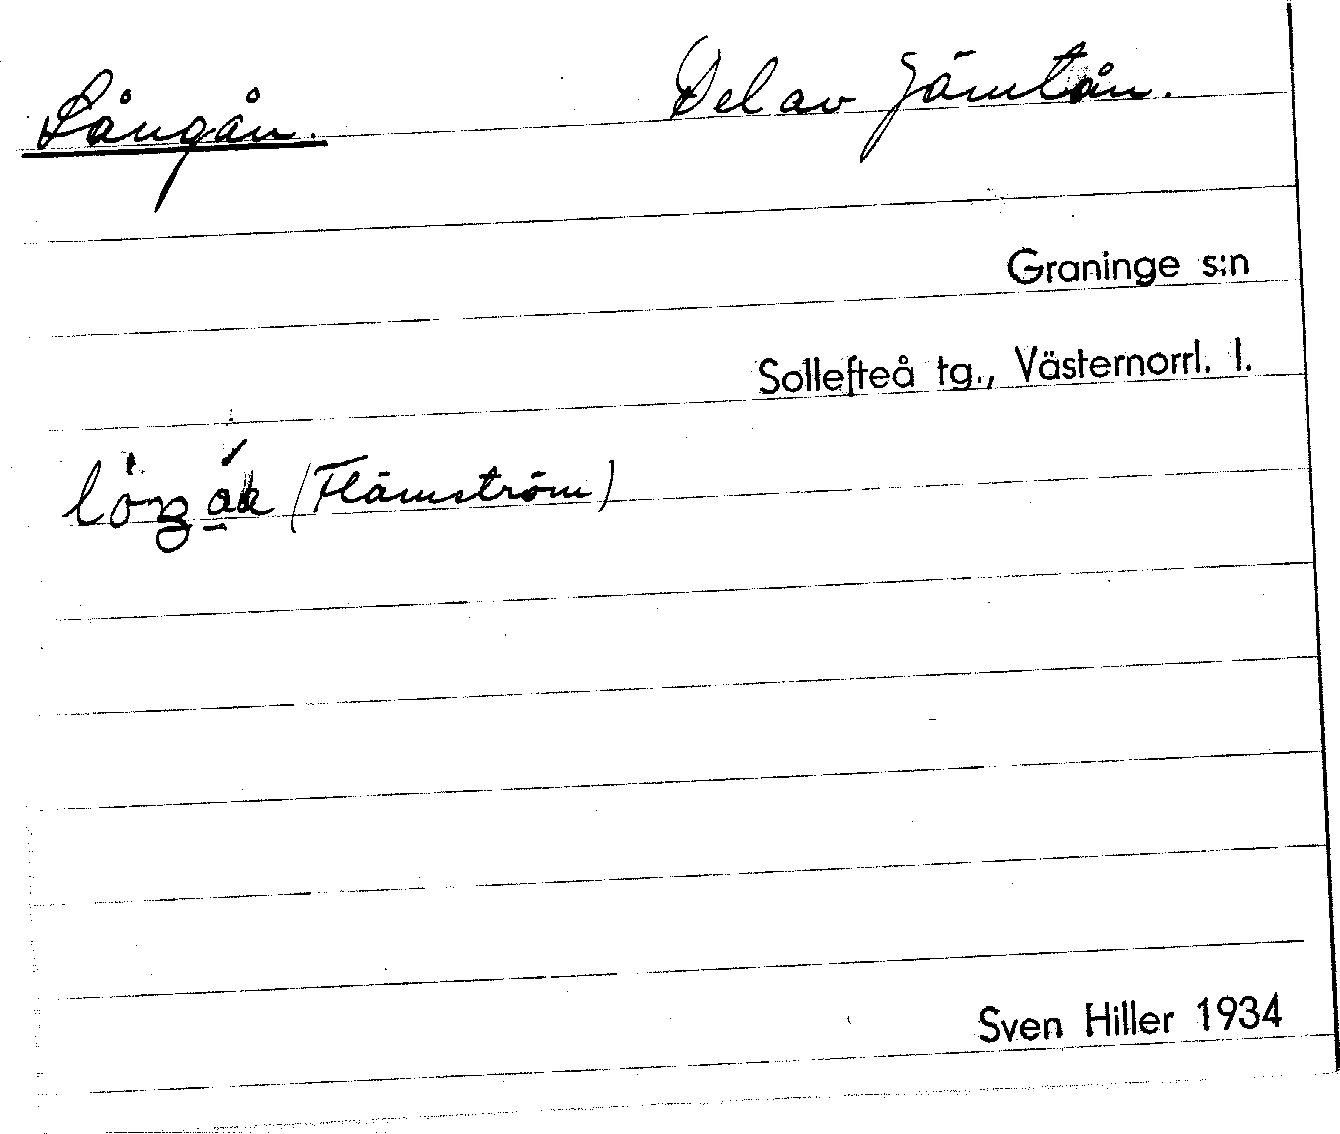 Långån. Del av Jämtån.
Graninge s:n
Sollefteå tg., Västernorrl. l.
(Flämström)
Sven Hiller 1934